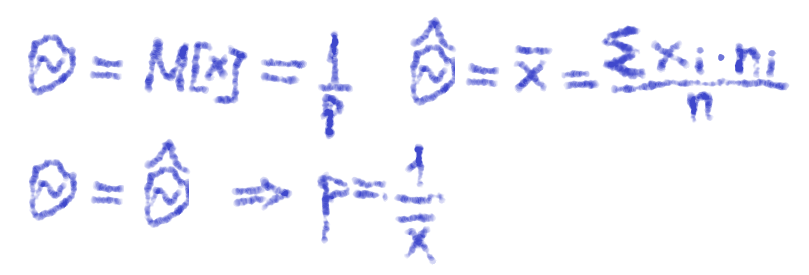 Θ = M[x] = 1/p   Θ̂ = x̄ = Σ xᵢ·nᵢ / n
Θ = Θ̂ ⇒ p = 1/x̄